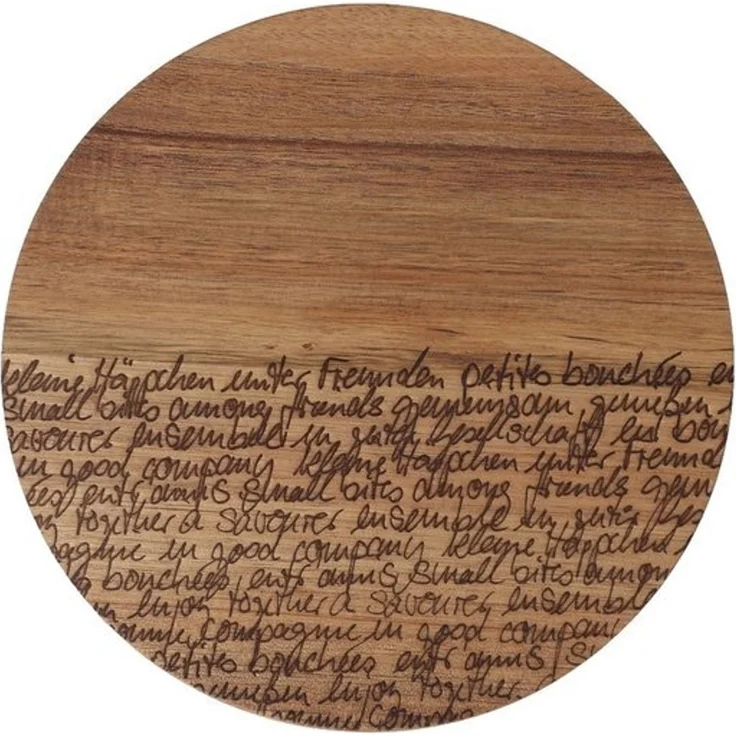 kleine Häppchen unter Freunden petites bouchées en
small bites among friends gemeinsam genießen
savourer ensemble in guter Gesellschaft en bon
in good company kleine Häppchen unter Freund
ées entre amis small bites among friends gem
together à savourer ensemble in guter Ges
pagnie in good company kleine Häppchen
bouchées entre amis small bites among
enjoy together à savourer ensemble
bonne compagnie in good compan
petites bouchées entre amis s
genießen enjoy together
bonne comp